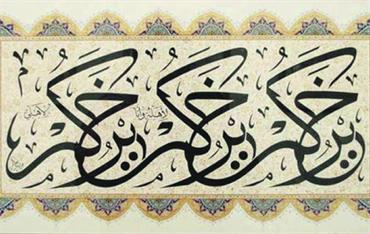 خيركم خيركم لأهله وأنا خيركم لأهلي